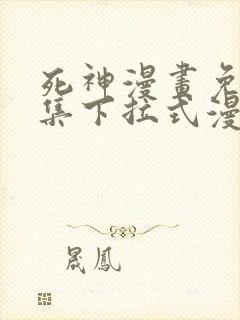 死神漫畫免
集下拉式漫
晟鳳